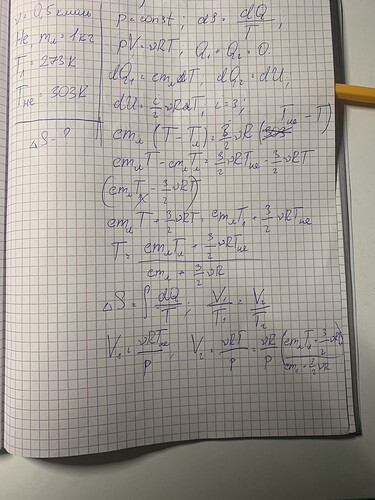 ν = 0,5 кмоль
He, mл = 1 кг
Tл = 273К
THe = 303К
ΔS - ?
p = const; dS = dQ/T;
pV = νRT, Q1 + Q2 = 0.
dQ1 = cmлdT, dQ2 = dU,
dU = i/2 νRdT, i = 3;
cmл (T - Tл) = 3/2 νR (THe - T)
cmлT - cmлTл = 3/2 νRTHe - 3/2 νRT
(cmлTл - 3/2 νRT)
cmлT + 3/2 νRT = cmлTл + 3/2 νRTHe
T = (cmлTл + 3/2 νRTHe)/(cmл + 3/2 νR)
ΔS = ∫ dQ/T; V1/T1 = V2/T2
V1 = νRTHe/p, V2 = νRT/p = νR/p